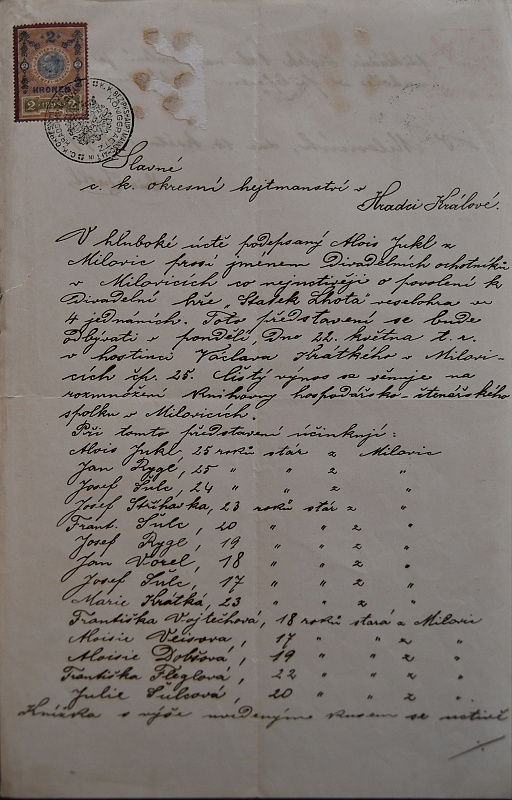 2
KRONEN
2
2
K. K. BEZIRKSHAUPTMANNSCHAFT IN KÖNIGGRÄTZ
Slavné
c. k. okresní hejtmanství v
Hradci Králové.
V hluboké úctě podepsaný Alois Jukl z
Milovic prosí jménem Divadelních ochotníků
v Milovicích co nejuctivěji o povolení k
Divadelní hře, "Statek Lhota" veselohra ve
4 jednáních. Toto představení se bude
odbývati v pondělí, dno 22. května t. r.
v hostinci Václava Krátkého v Milovi-
cích čp. 25. Čistý výnos se věnuje na
rozmnožení knihovny hospodářsko-čtenářského
spolku v Milovicích.
Při tomto představení účinkují:
Alois Jukl, 25 roků stár z Milovic
Jan Rygl, 25 " " z "
Josef Šulc, 24 " " z "
Josef Střihavka, 23 roků stár z "
Frant. Šulc, 20 " " z "
Josef Rygl, 19 " " z "
Jan Vorel, 18 " " z "
Josef Šulc, 17 " " z "
Marie Krátká, 23 " " z "
Františka Vojtěchová, 18 roků stará z Milovi
Aloisie Veisova, 17 " " z "
Aloisie Dobšová, 19 " " z "
Františka Fléglová, 22 " " z "
Julie Šulcová, 20 " " z "
Knížka s výše uvedeným kusem se uctivě